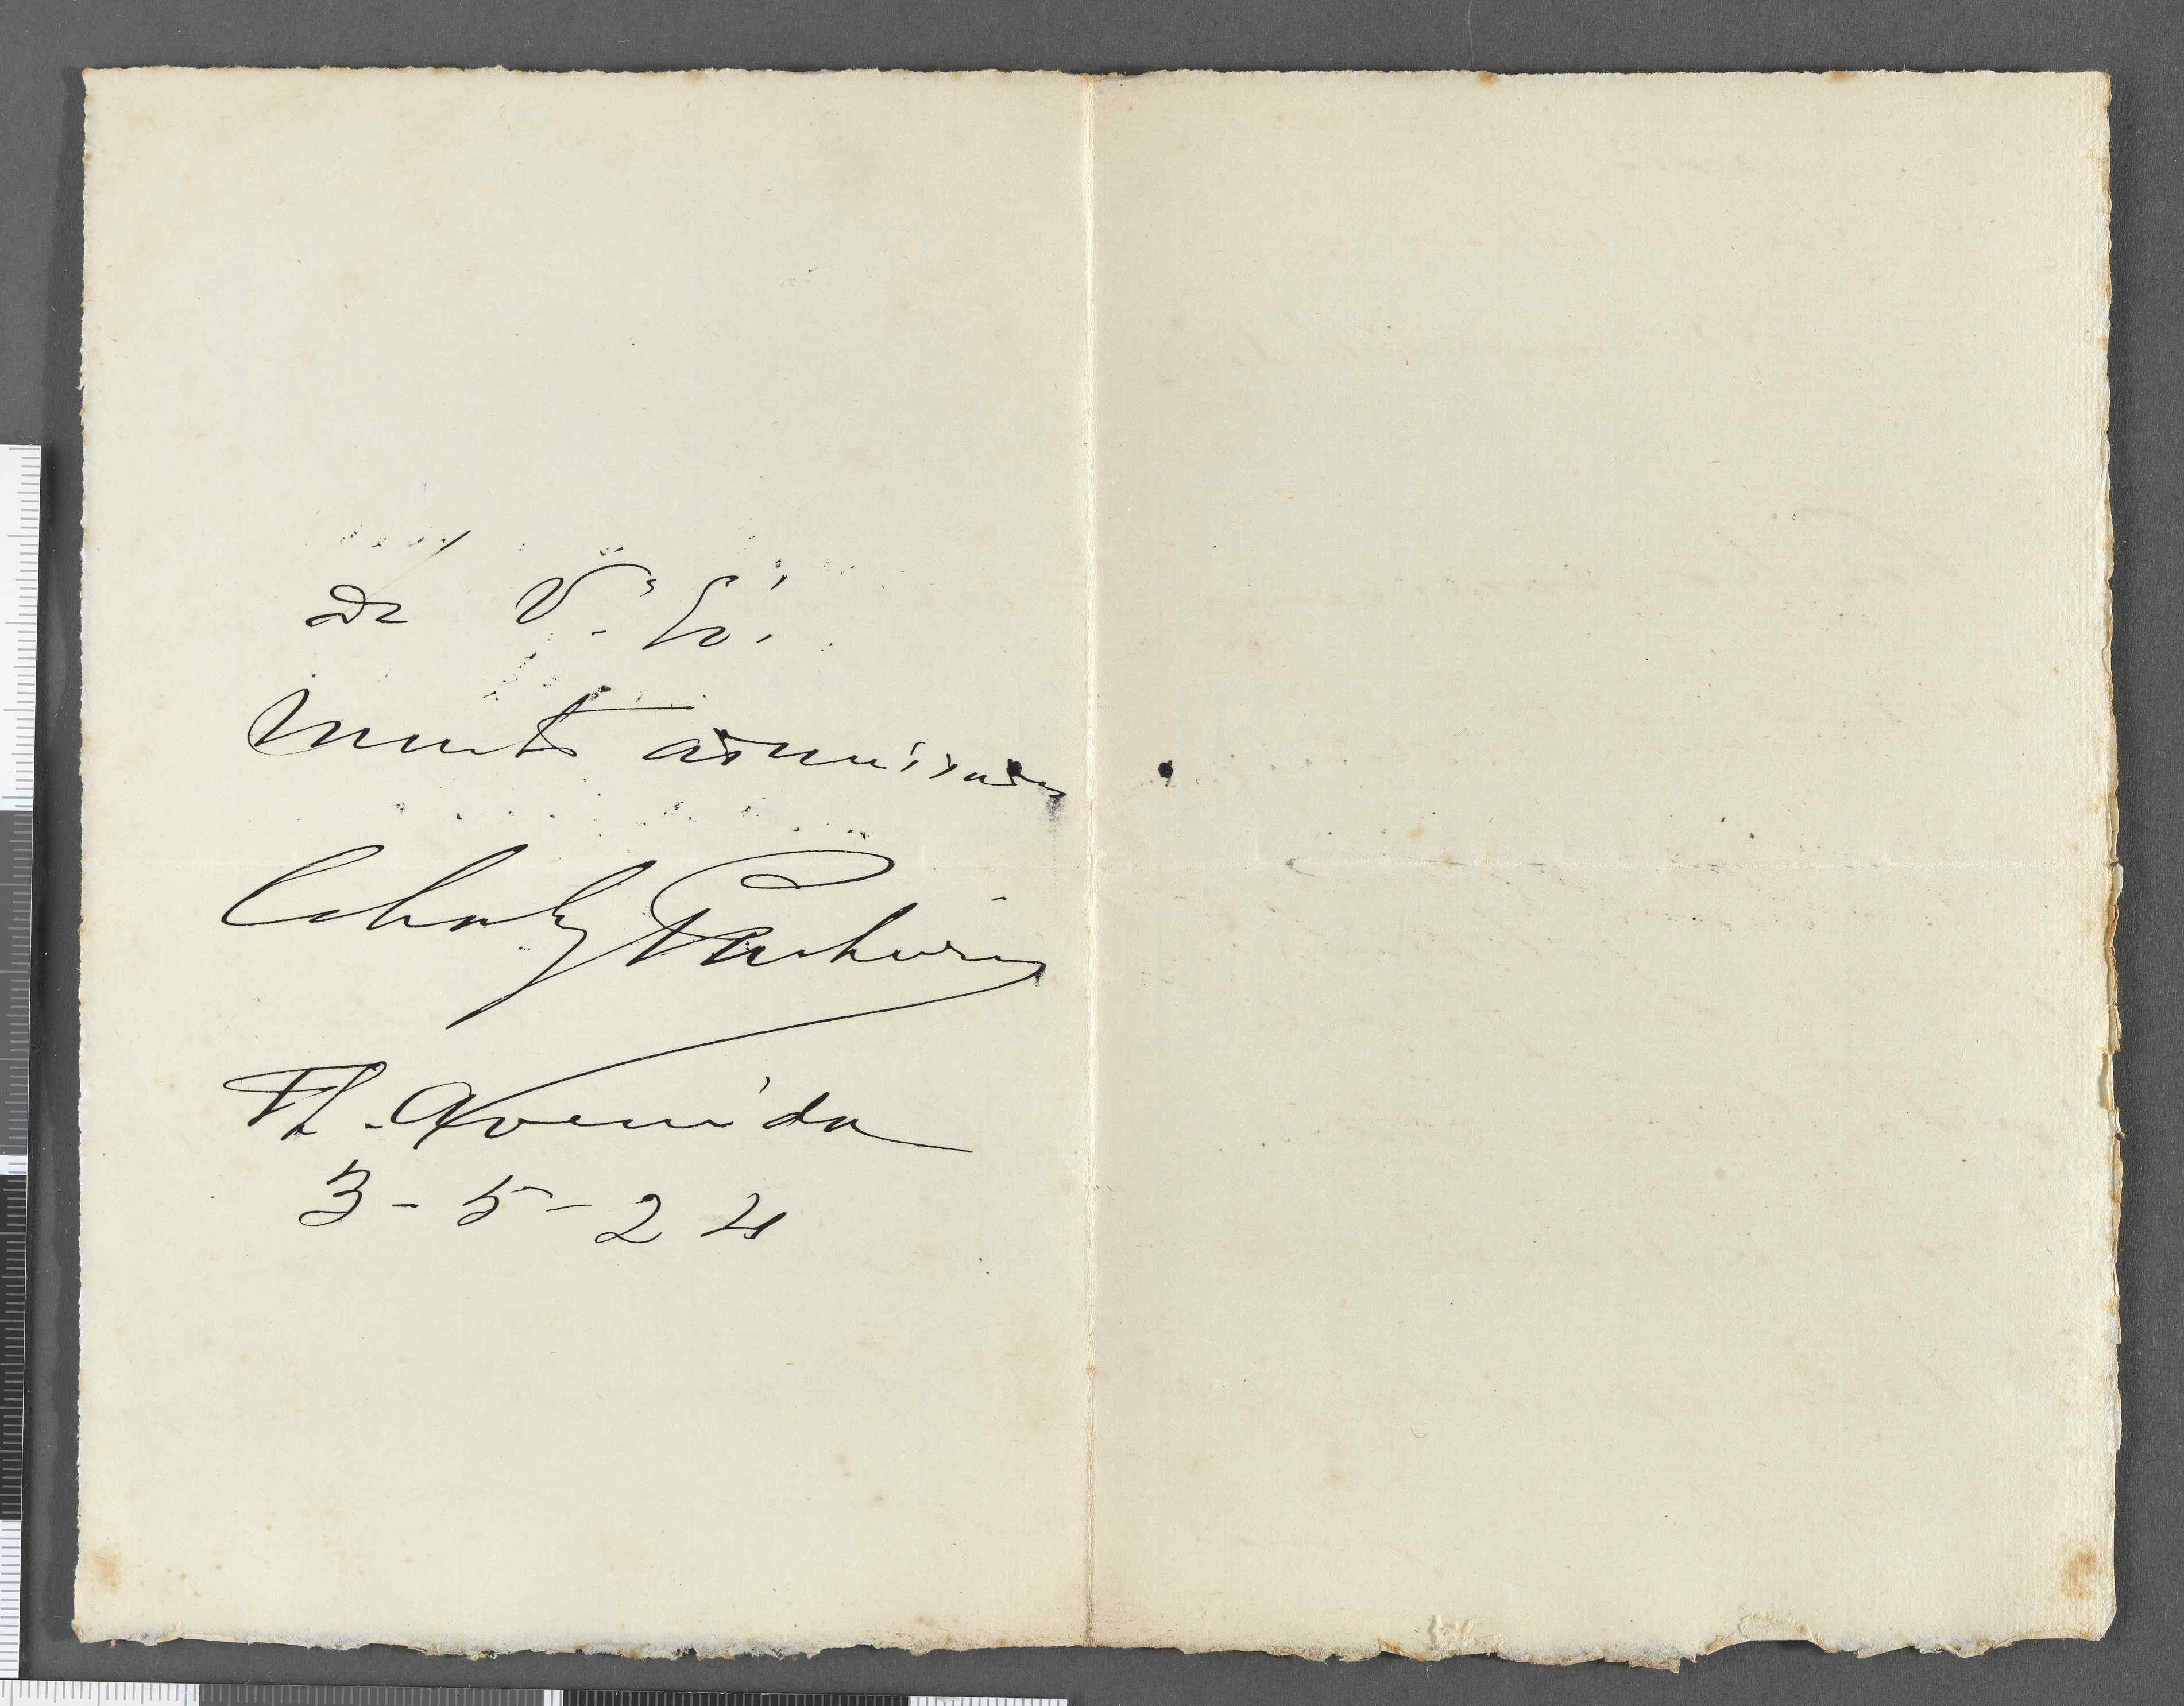 De V. Ex.
Muito admirador
Th. Avenida
3-5-24